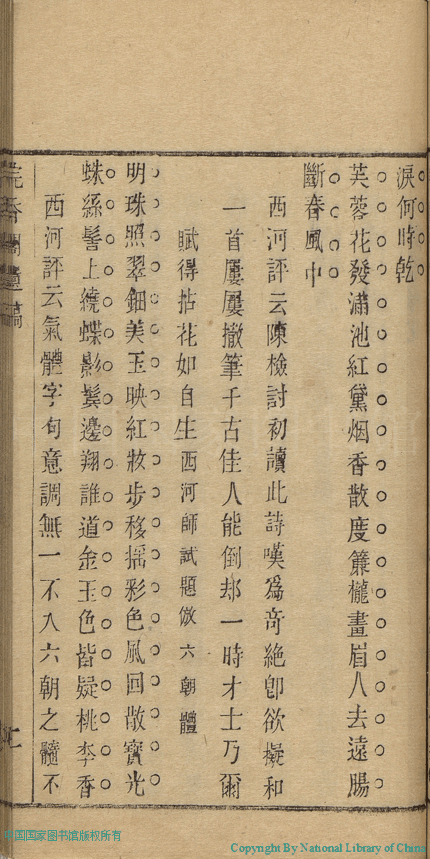 淚何時乾
芙蓉花發滿池紅黛烟香散度簾櫳畫眉人去遠腸
斷春風中
西河評云陳檢討初讀此詩嘆爲奇絶卽欲擬和
一首屢屢撤筆千古佳人能倒却一時才士乃爾
賦得拈花如自生西河師試題倣六朝體
明珠照翠鈿美玉映紅妝步移搖彩色風回散寶光
蛛絲髻上繞蝶影鬢邊翔誰道金玉色皆疑桃李香
西河評云氣體字句意調無一不入六朝之髓不
中国国家图书馆版权所有
Copyright By National Library of China